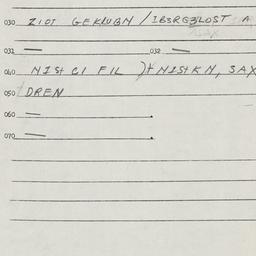 030 ZIOI GEKLUBN / IBSRGBLOST A
031 — 032 —
040 NIST CI FIL )+ NIST KN, SAX
050 DREN
060 — .
070 — .